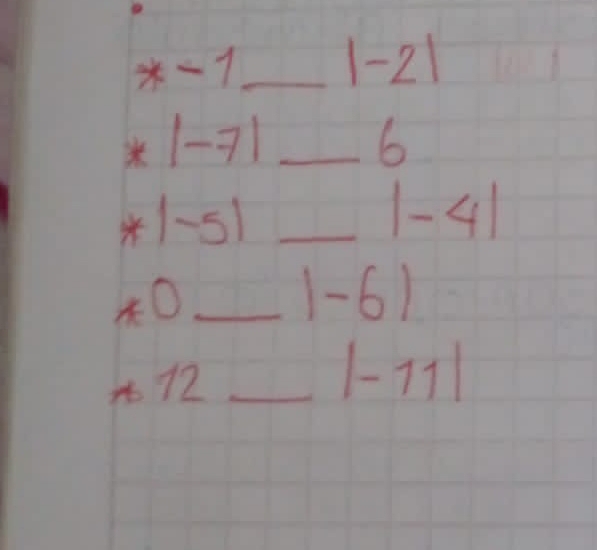 * -1 ___ |-2|
* |-7| ___ 6
* |-5| ___ |-4|
* 0 ___ |-6|
* 12 ___ |-11|